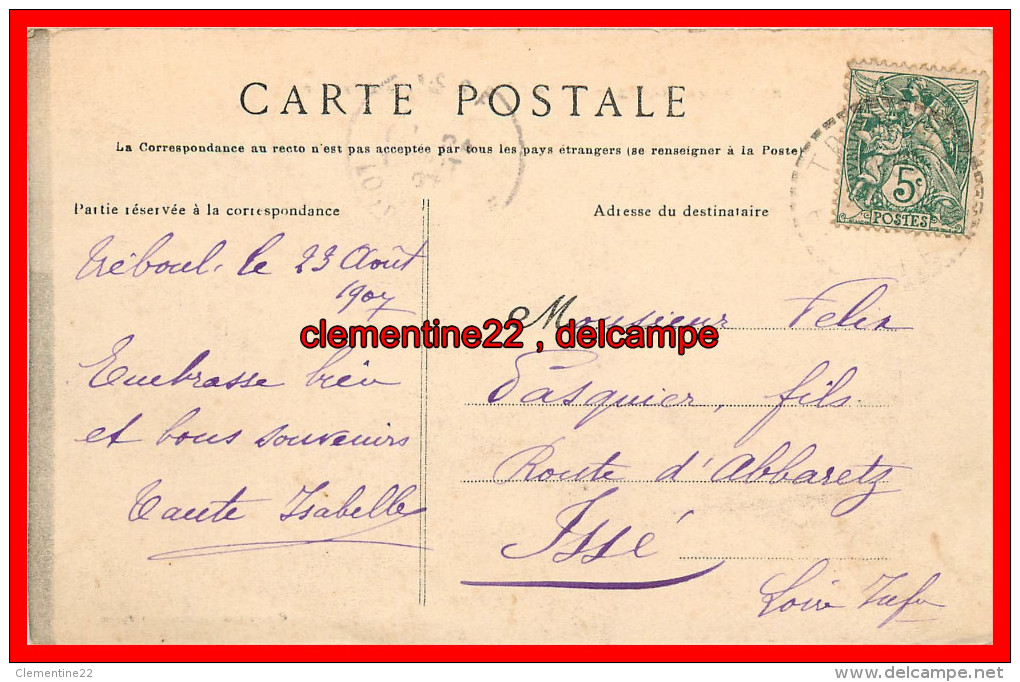 CARTE POSTALE
La Correspondance au recto n'est pas acceptée par tous les pays étrangers (se renseigner à la Poste)
Partie réservée à la correspondance
Adresse du destinataire
5c
POSTES
Tréboul, le 23 Août
1907
Embrasse bien
et bons souvenirs
Tante Isabelle
Monsieur Felix
Pasquier, fils
Route d'Abbaretz
Issé
Loire Infre
clementine22 , delcampe
Clementine22
delcampe.net